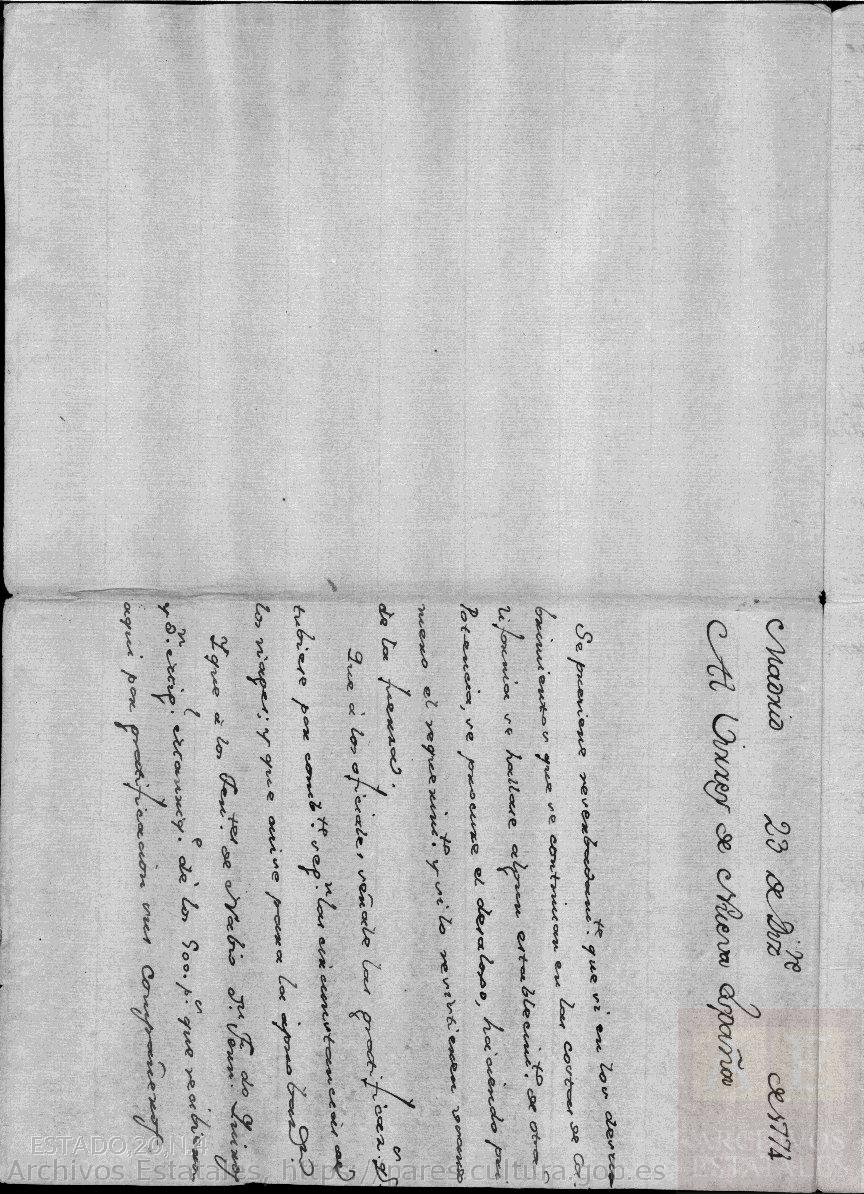 Madrid 23 de Diz.re de 1774
Al Virrey de Nueva España
Se previene reserbadam.te que si en los descu
brimientos que se continuan en las costas de Ca
lifornia se hallase algun establecim.to de otra
Potencia, se procure el desalojo, haciendo pri
mero el requerim.to y si lo resistieren usando
de la fuerza.
Que à los oficiales señale las gratificaz.s q.e
tubiere por comb.te seg.n las circunstancias de
los viages; y que avise para la aprobaz.n
Y que à los Ten.tes de Nabio D.n Fern.do Quiros
y D.n Mig.l Manriq.e dè los 900. p.s que recibieron
aqui por gratificacion sus compañeros
ESTADO,20,N.14
Archivos Estatales, https://pares.cultura.gob.es
ARCHIVOS
ESTATALES